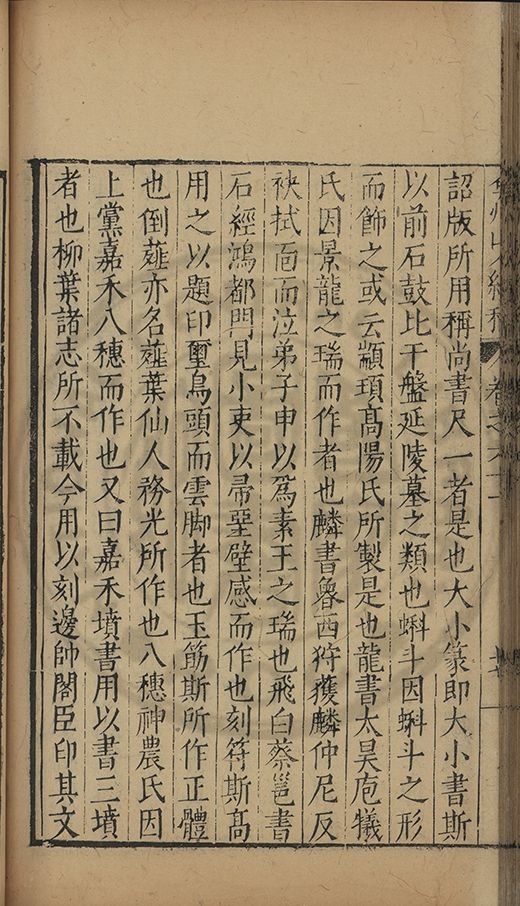 弇州山人續稿 卷之
詔版所用稱尚書尺一者是也大小篆即大小書斯
以前石鼓比干盤延陵墓之類也蝌斗因蝌斗之形
而飾之或云顓頊髙陽氏所製是也龍書太昊庖犧
氏因景龍之瑞而作者也麟書魯西狩獲麟仲尼反
袂拭面而泣弟子申以爲素王之瑞也飛白蔡邕書
石經鴻都門見小吏以帚堊壁感而作也刻符斯髙
用之以題印璽鳥頭而雲脚者也玉筯斯所作正體
也倒薤亦名薤葉仙人務光所作也八穗神農氏因
上黨嘉禾八穗而作也又曰嘉禾墳書用以書三墳
者也柳葉諸志所不載今用以刻邊帥閣臣印其文